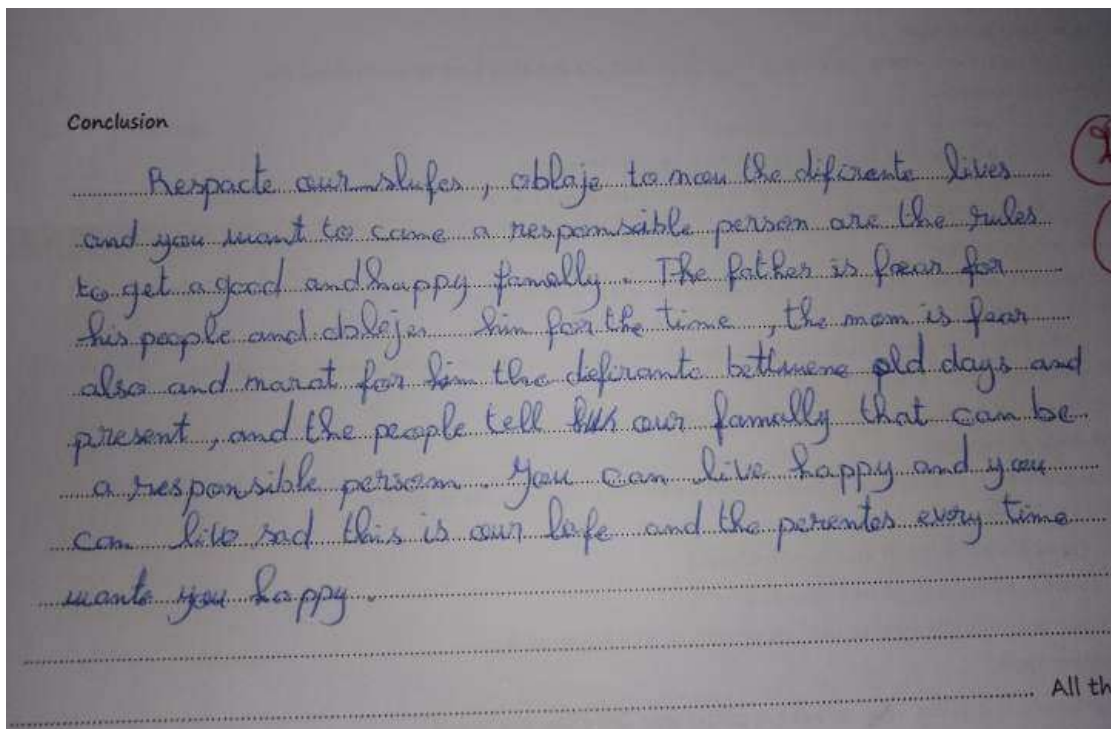 Conclusion
Respacte our slufes, ablaje to mou the difirente lives
and you want to came a responsaible person are the rules
to get a good and happy famally. The father is fear for
his people and him for the time, the mom is fear
also and for him the defirante bettwene old days and
present, and the people tell our famally that can be
a responsible person. You can live happy and you
can live sad this is our life and the perentes every time
wants you happy.
All th